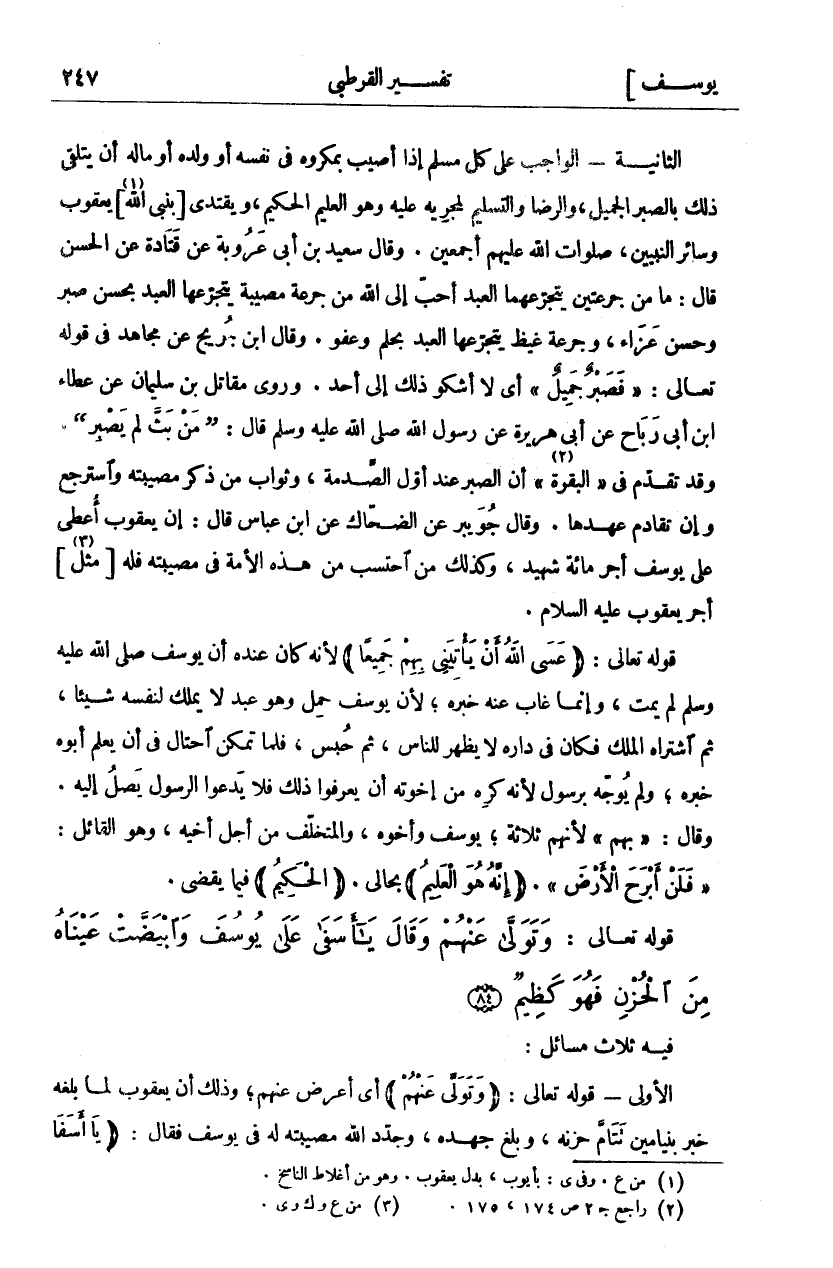 يوسف ]
تفسير القرطبي
٢٤٧
الثانية — الواجب على كل مسلم إذا أصيب بمكروه فى نفسه أو ولده أو ماله أن يتلقى
ذلك بالصبر الجميل، والرضا والتسليم لمجريه عليه وهو العليم الحكيم، ويقتدى [بنبى الله](١) يعقوب
وسائر النبيين، صلوات الله عليهم أجمعين . وقال سعيد بن أبى عَرُوبة عن قَتَادة عن الحسن
قال : ما من جرعتين يتجرّعهما العبد أحبّ إلى الله من جرعة مصيبة يتجرّعها العبد بحسن صبر
وحسن عَزَاء ، وجرعة غيظ يتجرّعها العبد بحلم وعفو . وقال ابن جُريج عن مجاهد فى قوله
تعالى : « فَصَبْرٌ جَمِيلٌ » أى لا أشكو ذلك إلى أحد . وروى مقاتل بن سليمان عن عطاء
ابن أبى رَبَاح عن أبى هريرة عن رسول الله صلى الله عليه وسلم قال : ”مَنْ بَثَّ لم يَصْبِر“ .
وقد تقدّم فى « البقرة »(٢) أن الصبر عند أوّل الصَّدمة ، وثواب من ذكر مصيبته وٱسترجع
وإن تقادم عهدها . وقال جُوَيبر عن الضحّاك عن ابن عباس قال : إن يعقوب أُعطى
على يوسف أجر مائة شهيد ، وكذلك من ٱحتسب من هذه الأمة فى مصيبته فله [ مثل ](٣)
أجر يعقوب عليه السلام .
قوله تعالى : ﴿ عَسَى اللهُ أَنْ يَأْتِيَنِى بِهِمْ جَمِيعًا ﴾ لأنه كان عنده أن يوسف صلى الله عليه
وسلم لم يمت ، وإنما غاب عنه خبره ؛ لأن يوسف حمل وهو عبد لا يملك لنفسه شيئا ،
ثم ٱشتراه الملك فكان فى داره لا يظهر للناس ، ثم حُبس ، فلما تمكن ٱحتال فى أن يعلم أبوه
خبره ؛ ولم يُوجّه برسول لأنه كره من إخوته أن يعرفوا ذلك فلا يَدعوا الرسول يَصلُ إليه .
وقال : « بهم » لأنهم ثلاثة ؛ يوسف وأخوه ، والمتخلّف من أجل أخيه ، وهو القائل :
« فَلَنْ أَبْرَحَ الْأَرْضَ » . ﴿ إِنَّهُ هُوَ الْعَلِيمُ ﴾ بحالى . ﴿ الْحَكِيمُ ﴾ فيما يقضى .
قوله تعالى : وَتَوَلَّىٰ عَنْهُمْ وَقَالَ يَـٰٓأَسَفَىٰ عَلَىٰ يُوسُفَ وَٱبْيَضَّتْ عَيْنَاهُ
مِنَ ٱلْحُزْنِ فَهُوَ كَظِيمٌ ﴿٨٤﴾
فيه ثلاث مسائل :
الأولى — قوله تعالى : ﴿ وَتَوَلَّى عَنْهُمْ ﴾ أى أعرض عنهم؛ وذلك أن يعقوب لما بلغه
خبر بنيامين تَتَامَّ حزنه ، وبلغ جهده ، وجدّد الله مصيبته له فى يوسف فقال : ﴿ يَا أَسَفَا
(١) من ع . وفى ى : بأيوب ، بدل يعقوب . وهو من أغلاط الناسخ .
(٢) راجع ج ٢ ص ١٧٤ ، ١٧٥ . (٣) من ع و ك و ى .